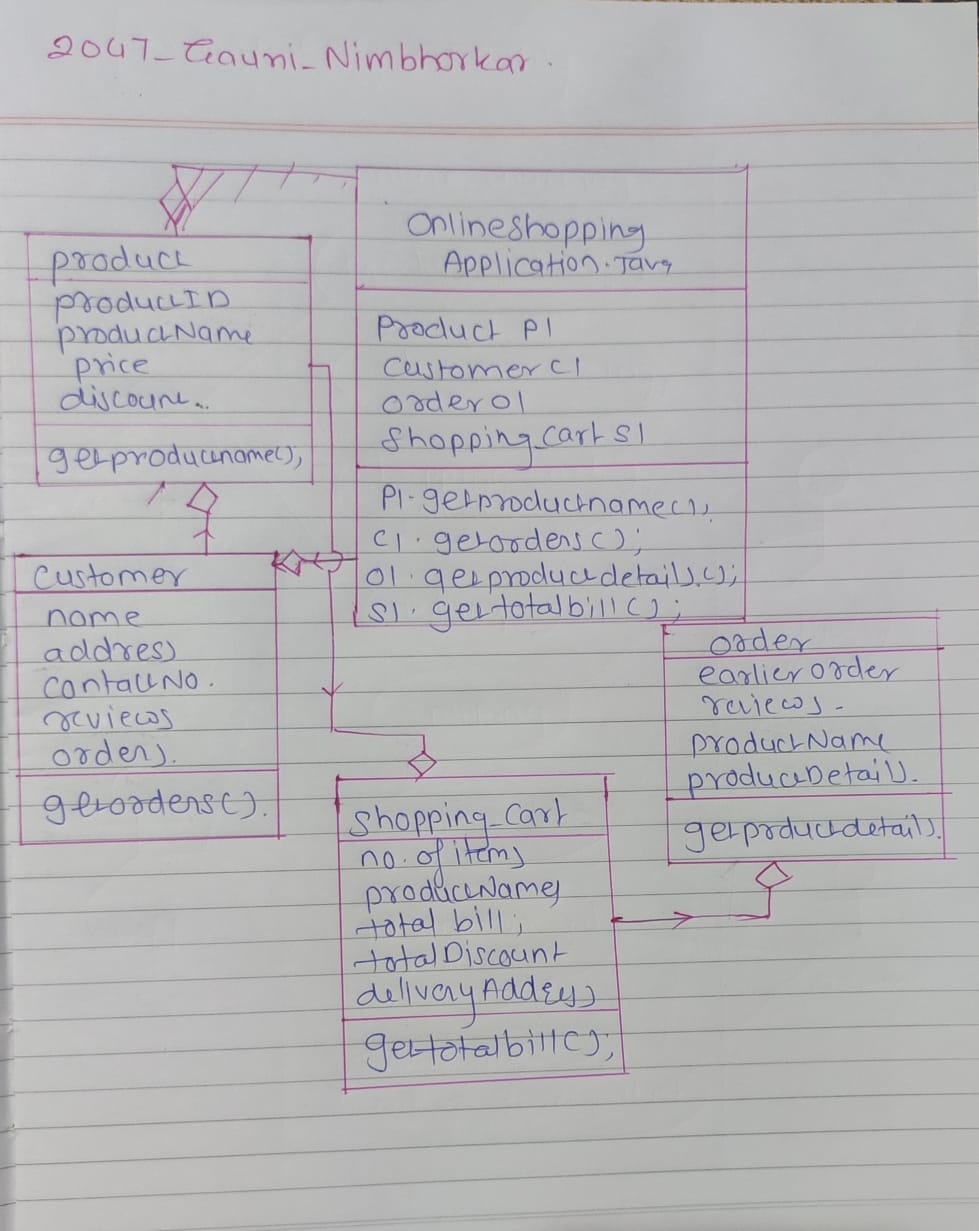 2047_Gauri_Nimbhorkar.
product
productID
productName
price
discount..
getproductname();
Onlineshopping
Application.Java
Product p1
Customer c1
order o1
shopping_cart s1
P1.getproductname();
C1.getorders();
o1.getproductdetails();
s1.gettotalbill();
Customer
name
address
contactNo.
reviews
orders.
getorders().
order
earlier order
reviews-
productName
productDetails.
getprductdetails.
Shopping_Cart
no. of items
productNames
total bill;
totalDiscount
deliveryAddress
gettotalbill();